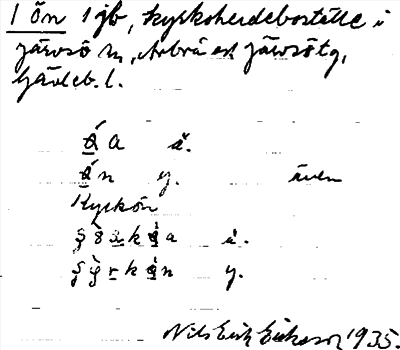 1 ön 1 jb, kyrkoherdeboställe i
Järvsö sn, Arbrå och Järvsö tg,
Gävleb. l.
a å.
n y. även
Kyrkön
y.
Nils Erik Eriksson 1935.